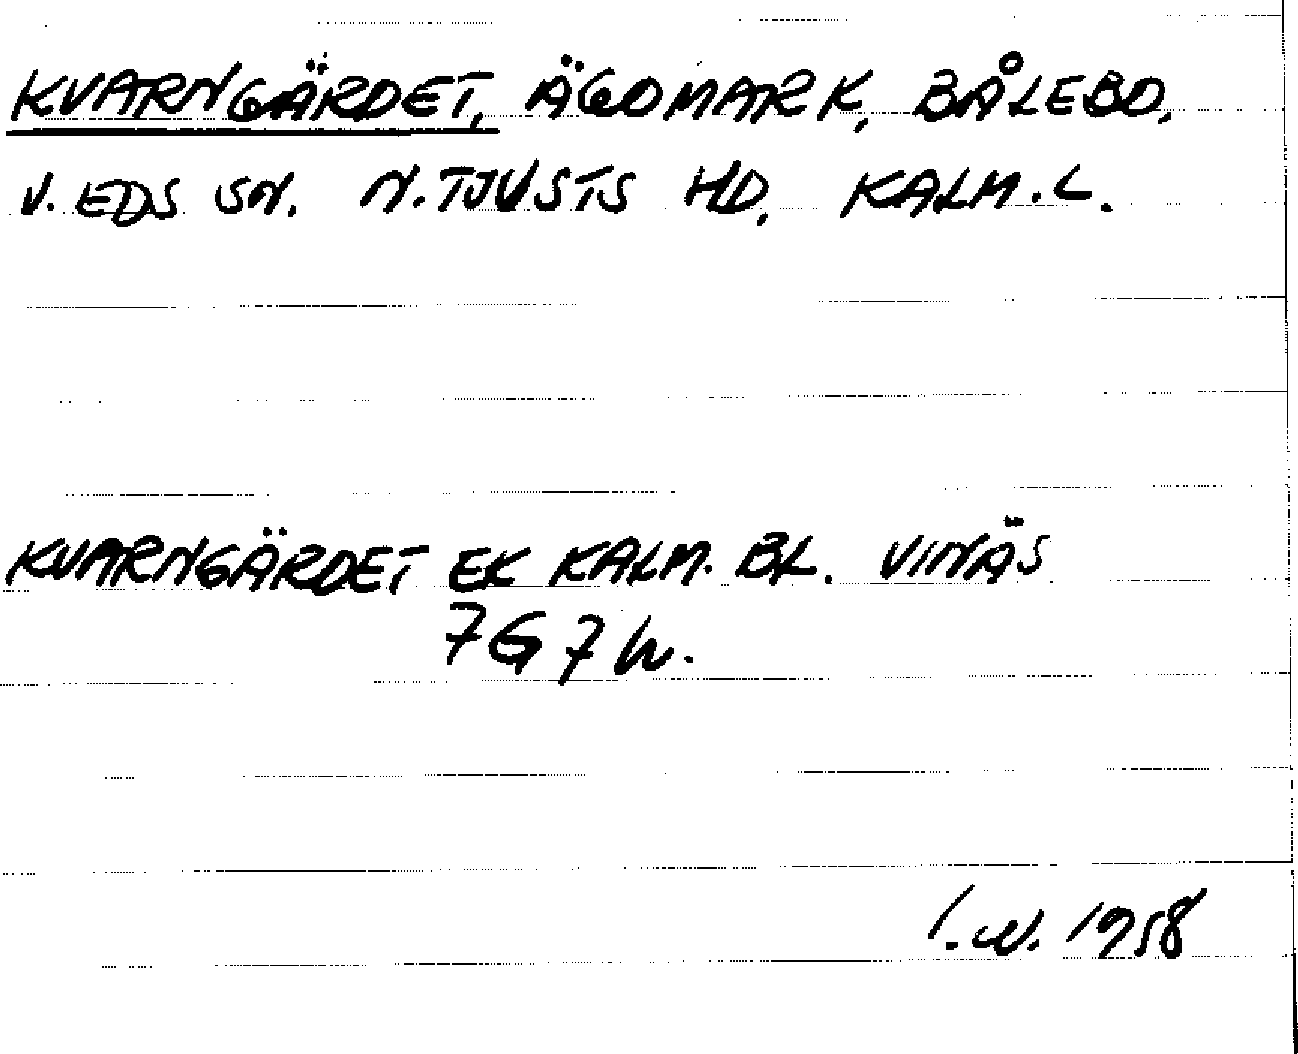 KVARNGÄRDET, ÄGOMARK, BÅLEBO,
V. EDS SN. N. TJUSTS HD, KALM. L.
KVARNGÄRDET EK KALM. BL. VINÄS
7G 7h.
I. W. 1958